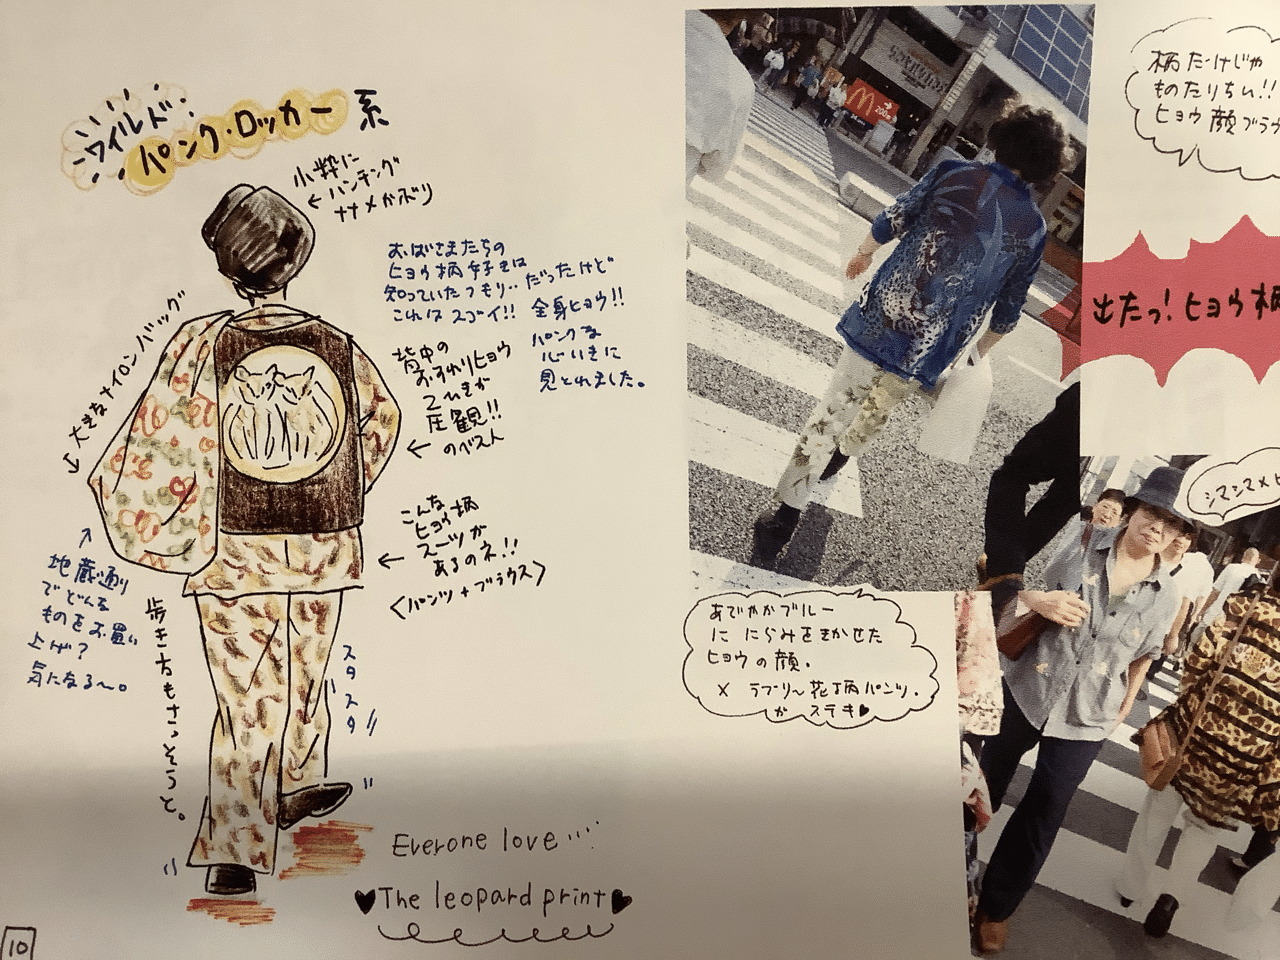 ワイルド
パンク・ロッカー系
小粋に
ハンチング
ナナメかぶり
←
おばさまたちの
ヒョウ柄好きは
知っていたつもり‥だったけど
これはスゴイ!! 全身ヒョウ!!
パンクな
心いきに
見とれました。
背中の
おすわりヒョウ
2ひきが
圧観!!
のベスト
←
↙ 大きなナイロンバッグ
こんな
ヒョウ柄
スーツが
あるのネ!!
←
<パンツ+ブラウス>
↗
地蔵通り
でどんな
ものをお買い
上げ?
気になる〜。
歩き方もさっそうと。
スタスタ
Everone love…
♥The leopard print♥
10
M
200
柄だけじゃ
ものたりない!!
ヒョウ顔ブラウ
出たっ!ヒョウ柄
シマシマ×ヒ
あでやかブルー
に にらみをきかせた
ヒョウの顔。
× ラブリ〜花柄パンツ。
が ステキ♥